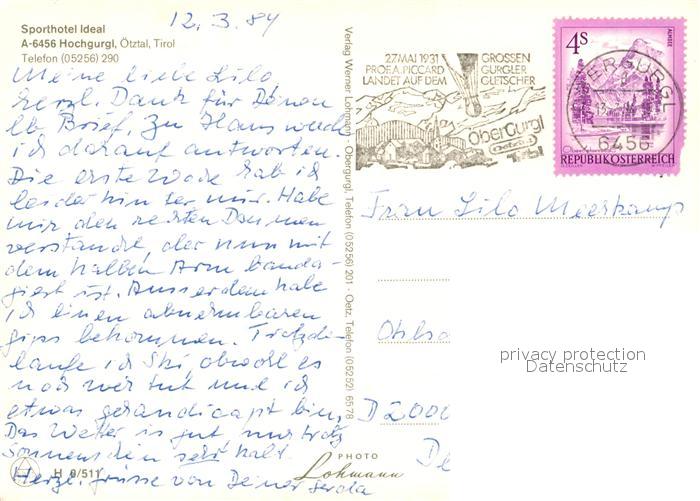 12.3.84
Sporthotel Ideal
A-6456 Hochgurgl, Ötztal, Tirol
Telefon (05256) 290
Meine liebe Lilo,
herzl. Dank für Deinen
lb. Brief. Zu Haus werde
ich darauf antworten.
Die erste Woche hab ich
leider hinter mir. Habe
mir den rechten Daumen
verstaucht, der nun mit
dem halben Arm banda-
giert ist. Ausserdem habe
ich einen abnehmbaren
Gips bekommen. Trotzdem
laufe ich Ski, obwohl es
noch weh tut und ich
etwas gehandicapt bin.
Das Wetter ist gut, nur trotz
Sonnenschein sehr kalt.
Herzl. Grüsse von Deiner Gerda
H 8/511
Verlag Werner Lohmann · Obergurgl, Telefon (05256) 201 · Oetz, Telefon (05252) 6578
PHOTO
Lohmann
27.MAI 1931
PROF.A.PICCARD
LANDET AUF DEM
GROSSEN
GURGLER
GLETSCHER
Obergurgl
Ötztal
Tirol
4S
ALMSEE
REPUBLIK ÖSTERREICH
OBERGURGL
6456
Frau Lilo Meerkamp
D 2000
privacy protection
Datenschutz